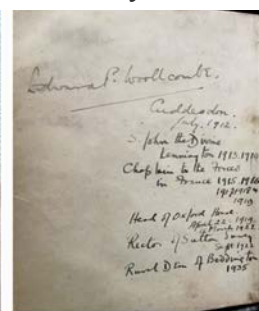 Edward P. Woollcombe.
Cuddesdon.
July. 1912.
S. John the Divine
Kennington 1913.1914
Chaplain to the Forces
in France 1915.1916
1917 1918
1919
Head of Oxford House.
April 22. 1919
March 1922
Rector of Sutton Surrey.
Sept 1922
Rural Dean of Beddington
1935